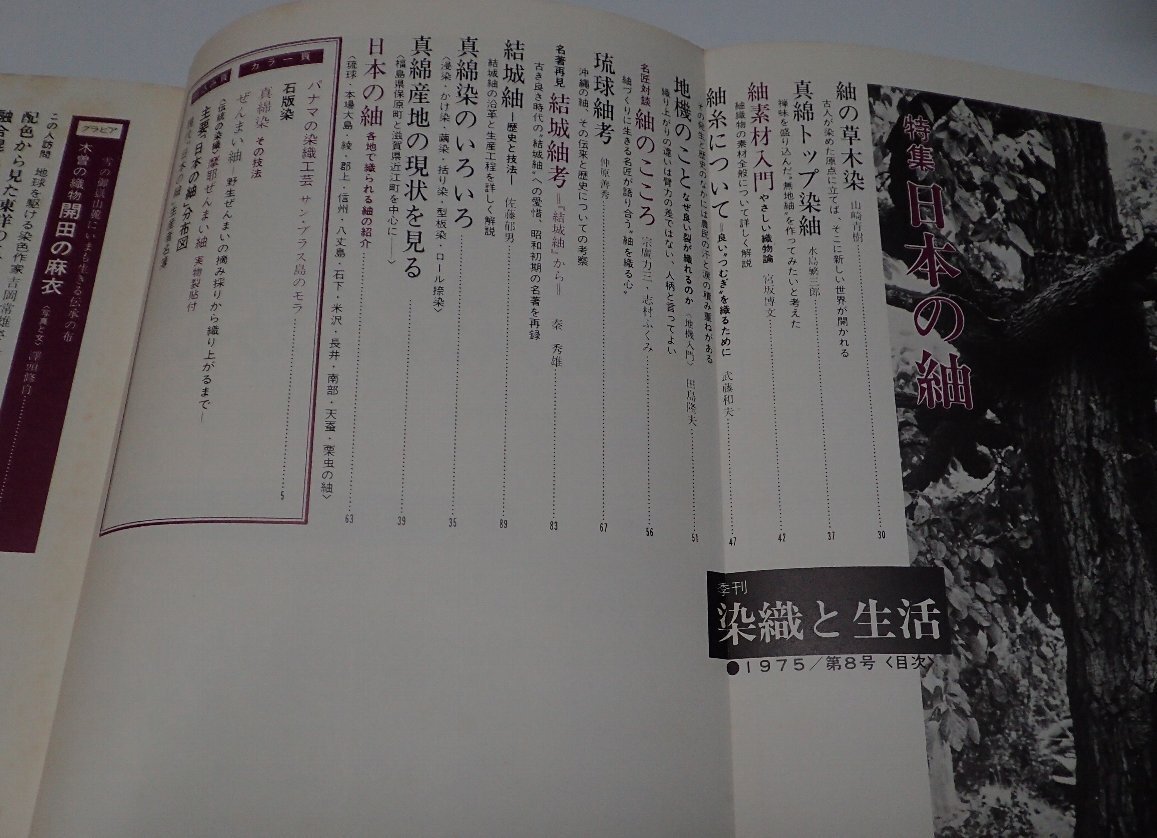 特集 日本の紬
紬の草木染 山崎青樹 30
古人が染めた原点に立てば、そこに新しい世界が開かれる
真綿トップ染紬 水島繁三郎 37
禅味を盛り込んだ〝無地紬〟を作ってみたいと考えた
紬素材入門 やさしい織物論 宮坂博文 42
紬織物の素材全般について詳しく解説
紬糸について ―良い〝つむぎ〟を織るために 武藤和夫 47
その発生と歴史のなかには農民の汗と涙の積み重ねがある
地機のこと なぜ良い裂が織れるのか〈地機入門〉 田島隆夫
織り上がりの違いは腎力の差ではない、人柄と言ってよい
名匠対談 紬のこころ 宗廣力三・志村ふくみ 56
紬づくりに生きる名匠が語り合う〝紬を織る心〟
琉球紬考 仲原善秀 67
沖縄の紬、その伝来と歴史についての考察
名著再見 結城紬考 ―『結城紬』から― 秦 秀雄 83
古き良き時代の〝結城紬〟への愛惜、昭和初期の名著を再録
結城紬 ―歴史と技法― 佐藤郁男 89
結城紬の沿革と生産工程を詳しく解説
真綿染のいろいろ 35
〈浸染・かけ染・繭染・括り染・型板染・ロール捺染〉
真綿産地の現状を見る 39
〈福島県保原町と滋賀県近江町を中心に――〉
日本の紬 各地で織られる紬の紹介 63
〈琉球・本場大島・綾・郡上・信州・八丈島・石下・米沢・長井・南部・天蚕・栗虫の紬〉
カラー頁
パナマの染織工芸 サン・ブラス島のモラ 5
石版染
真綿染 その技法
ぜんまい紬 野生ぜんまいの摘み採りから織り上がるまで―
実物裂貼付
主要・日本の紬分布図
グラビア
雪の御嶽山麓にいまも生きる伝承の布
木曽の織物 開田の麻衣 〈写真と文〉
この人訪問 地球を駆ける染色作家吉岡常雄
配色から見た東洋の
季刊
染織と生活
●1975／第8号〈目次〉